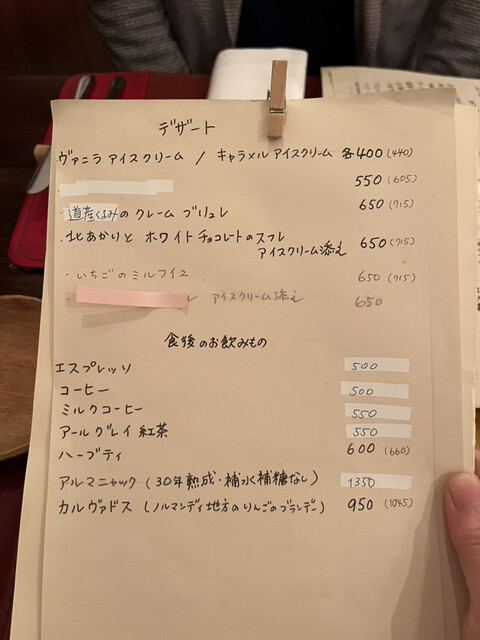 デザート
ヴァニラ アイスクリーム / キャラメル アイスクリーム 各400(440)
550(605)
・道産くるみの クレーム ブリュレ 650(715)
・北あかりと ホワイトチョコレートのスフレ
アイスクリーム添え 650(715)
・いちごのミルフイユ 650(715)
・ レ アイスクリーム添え 650
食後のお飲みもの
エスプレッソ 500
コーヒー 500
ミルクコーヒー 550
アールグレイ 紅茶 550
ハーブティ 600(660)
アルマニャック (30年熟成・補水補糖なし) 1350
カルヴァドス (ノルマンディ地方のりんごのブランデー) 950(1045)